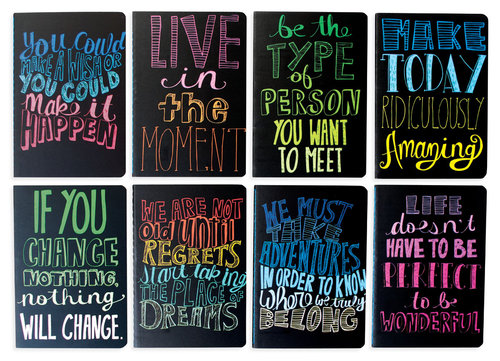 You Could
MAKE A WISH OR
YOU COULD
Make it
HAPPEN
LIVE
in
the
MOMENT
be the
TYPE
of
PERSON
YOU WANT
TO MEET
MAKE
TODAY
RIDICULOUSLY
Amazing
IF YOU
CHANGE
NOTHING,
nothing
WILL CHANGE.
WE ARE NOT
Old UNTIL
REGRETS
start taking
THE PLACE OF
DREAMS
WE MUST
TAKE
ADVENTURES
IN ORDER TO KNOW
Where we truly
BELONG
LIFE
doesn't
HAVE TO BE
PERFECT
to be
WONDERFUL